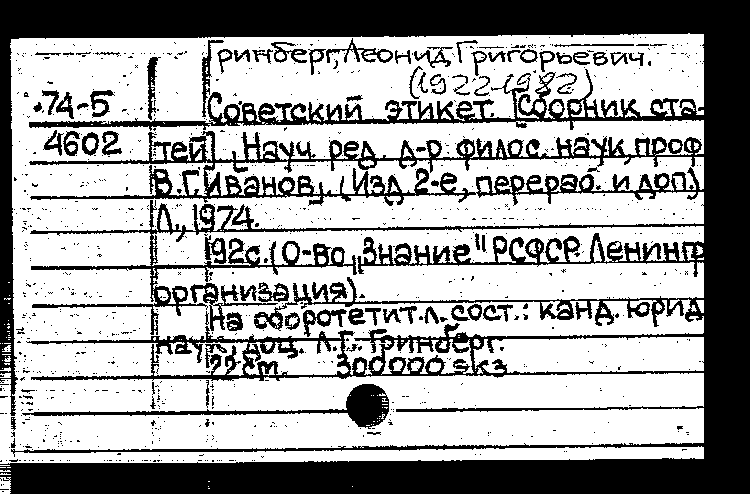 Гринберг, Леонид Григорьевич.
(1922-1982)
74-5 Советский этикет. [Сборник ста-
4602 тей]. Науч. ред. д-р филос. наук, проф
В.Г. Иванов. (Изд. 2-е, перераб. и доп.)
Л., 1974.
192с. (О-во „Знание" РСФСР. Ленингр
организация).
На обороте тит. л. сост.: канд. юрид
наук, доц. Л.Г. Гринберг.
22 см. 300000 экз